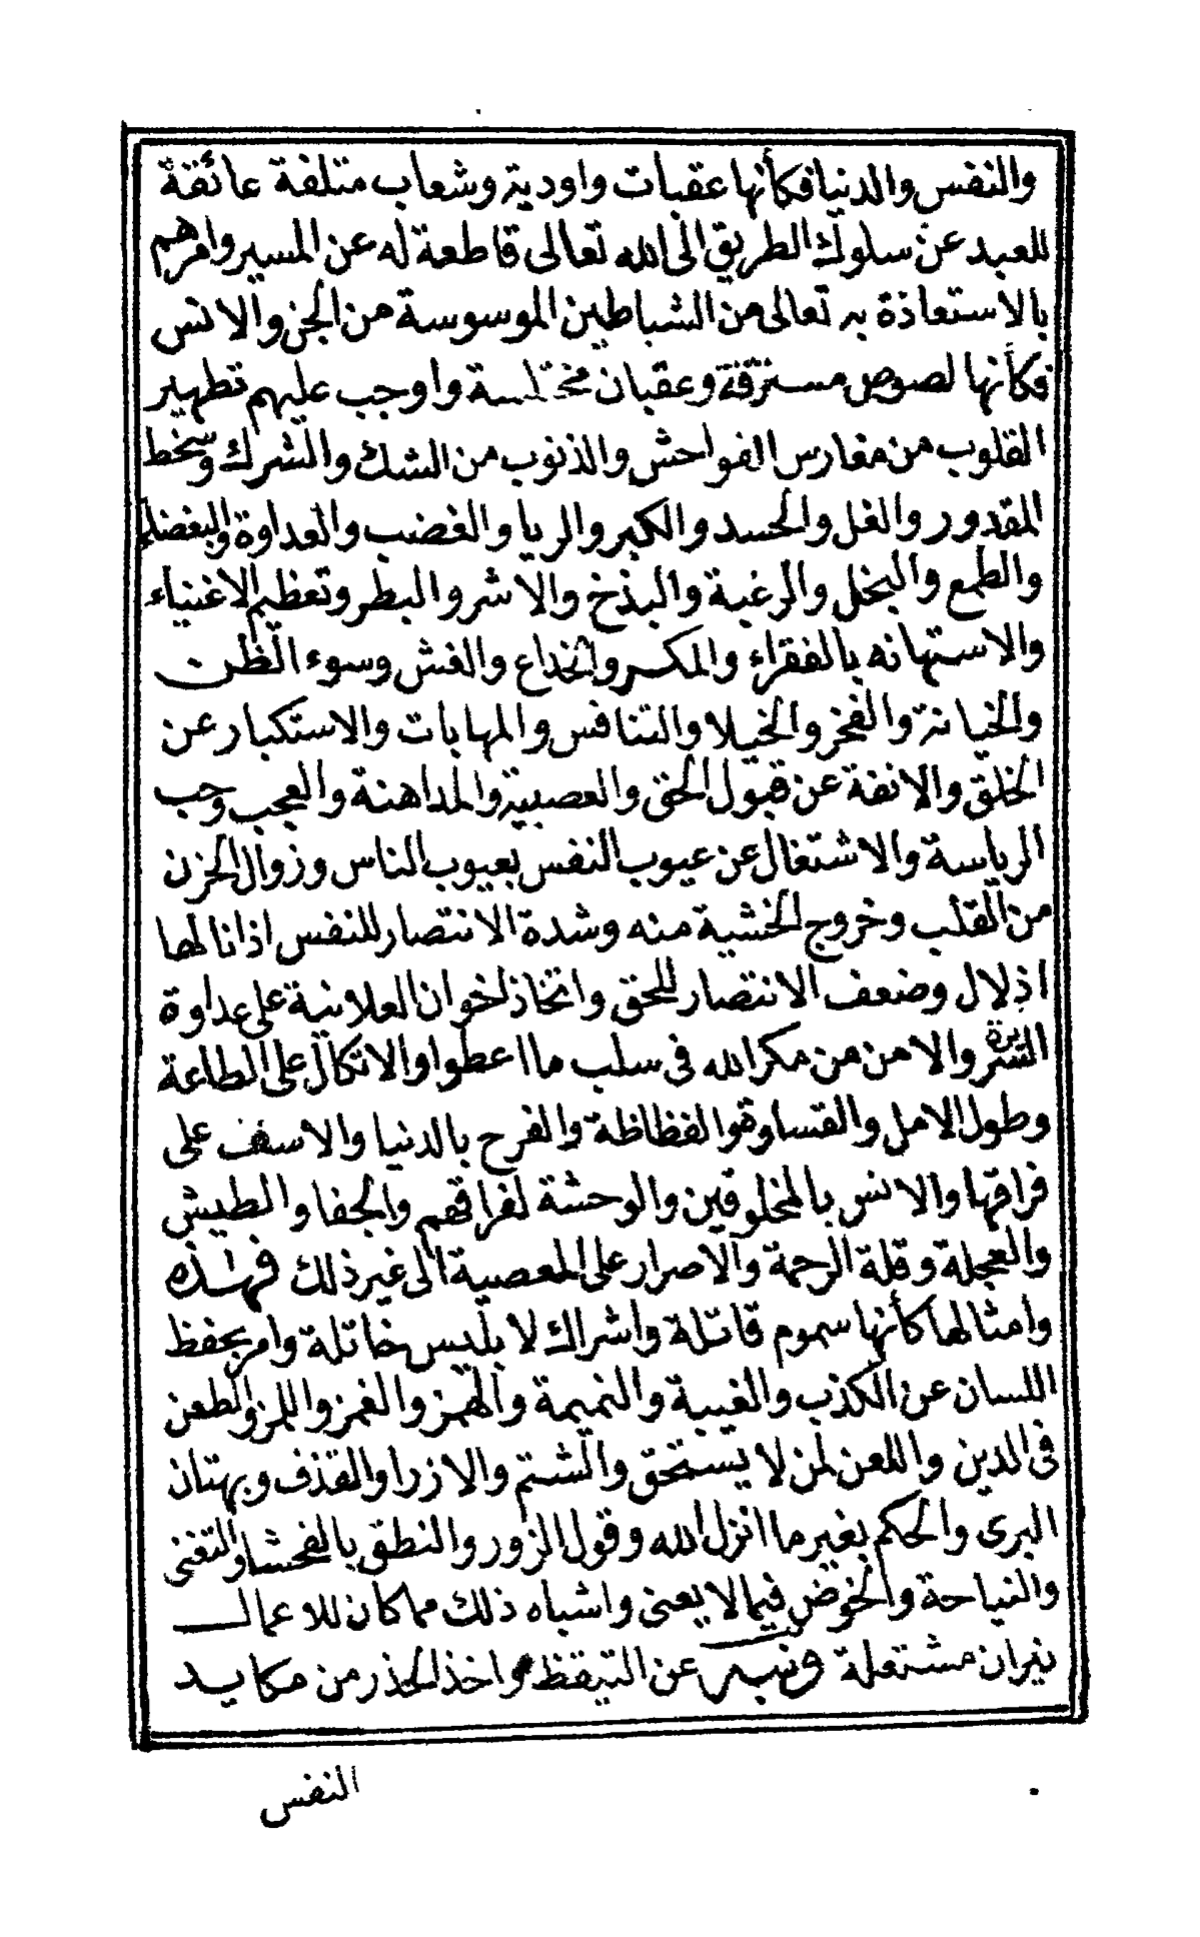 والنفس والدنيا فكأنها عقبات واودية وشعاب متلفة عائقة
للعبد عن سلوك الطريق الى الله تعالى قاطعة له عن المسير وامرهم
بالاستعاذة به تعالى من الشياطين الموسوسة من الجن والانس
فكأنها لصوص مسترقة وعقبان مختلسة واوجب عليهم تطهير
القلوب من مغارس الفواحش والذنوب من الشك والشرك وسخط
المقدور والغل والحسد والكبر والريا والغضب والعداوة والبغضاء
والطمع والبخل والرغبة والبذخ والاشر والبطر وتعظيم الاغنياء
والاستهانه بالفقراء والمكر والخداع والغش وسوء الظن
والخيانة والفخر والخيلا والتنافس والمهابات والاستكبار عن
الخلق والانفة عن قبول الحق والعصبية والمداهنة والعجب وحب
الرياسة والاشتغال عن عيوب النفس بعيوب الناس وزوال الحزن
من القلب وخروج الخشية منه وشدة الانتصار للنفس اذا نالها
اذلال وضعف الانتصار للحق واتخاذ اخوان العلانية على عداوة
السر والامن من مكر الله في سلب ما اعطوا والاتكال على الطاعة
وطول الامل والقساوة والفظاظة والفرح بالدنيا والاسف على
فراقها والانس بالمخلوقين والوحشة لفراقهم والجفا والطيش
والعجلة وقلة الرحمة والاصرار على المعصية الى غير ذلك فهذه
وامثالها كأنها سموم قاتلة واشراك لابليس خاتلة وامر بحفظ
اللسان عن الكذب والغيبة والنميمة والهمز والغمز واللمز والطعن
في الدين واللعن لمن لا يستحق والشتم والازرا والقذف وبهتان
البرى والحكم بغير ما انزل الله وقول الزور والنطق بالفحشا والتغنى
والنياحة والخوض فيما لا يعنى واشباه ذلك مما كان للاعمال
نيران مشتعلة ونبه عن التيقظ واخذ الحذر من مكايد
النفس